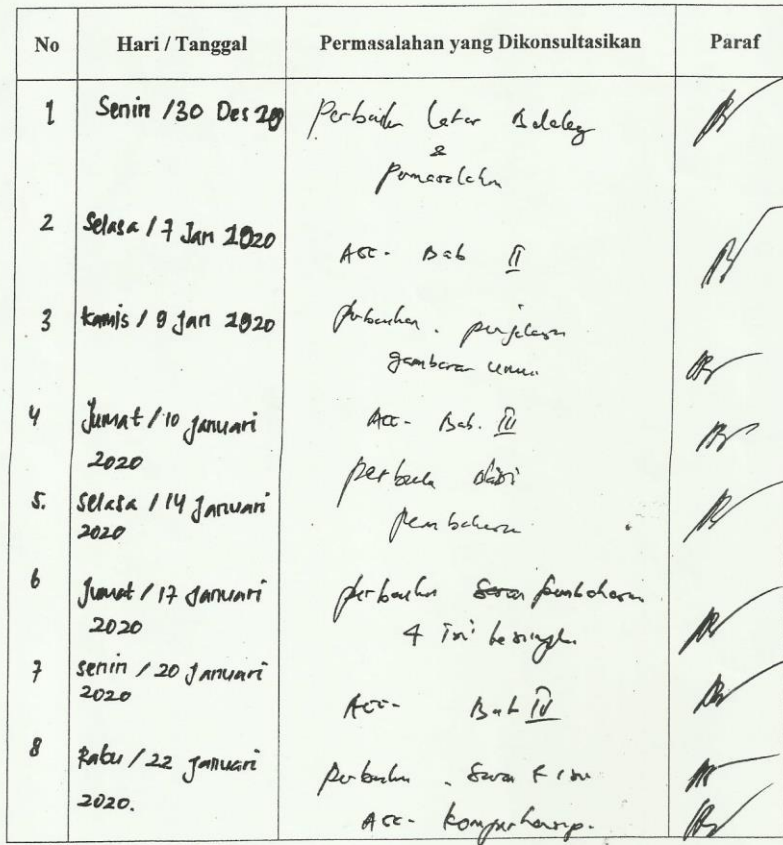 No Hari / Tanggal Permasalahan yang Dikonsultasikan Paraf
1 Senin / 30 Des Perbaikan Latar Belakang
&
Permasalahan
2 Selasa / 7 Jan 2020
Acc - Bab II
3 Kamis / 9 Jan 2020 perbaikan penjelasan
gambaran umum
4 Jumat / 10 Januari Acc - Bab. III
2020
perbaiki
5. Selasa / 14 Januari
2020 Pembahasan
6 Jumat / 17 Januari perbaikan pembahasan
2020
7 Senin / 20 Januari
2020
Acc - Bab IV
8 Rabu / 22 Januari
2020. perbaikan
Acc -